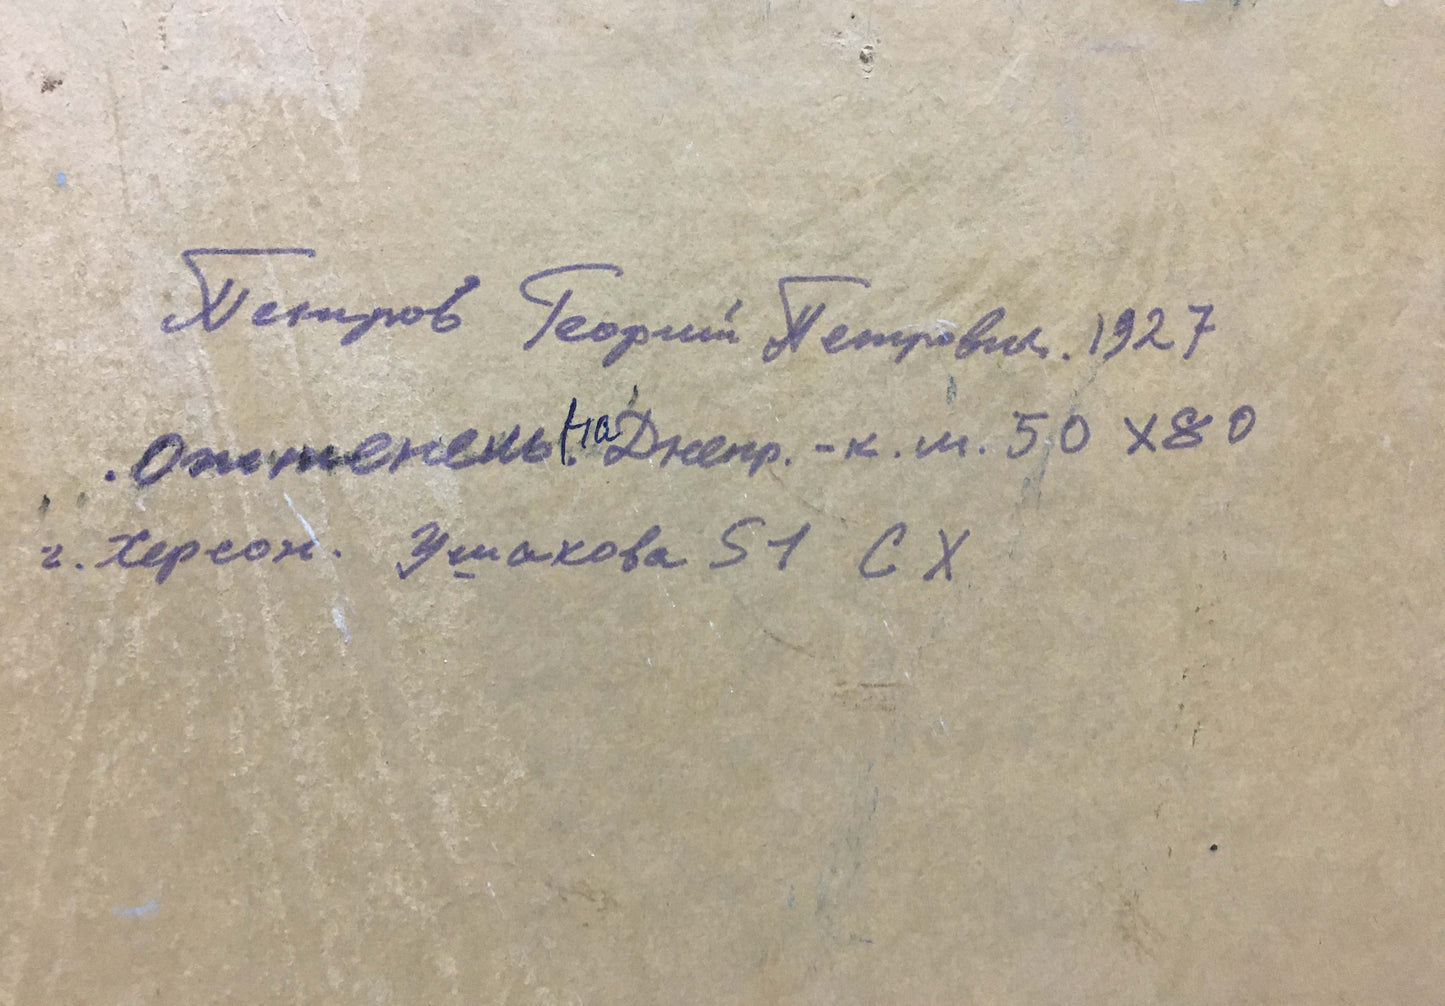 Петров Георгий Петрович. 1927
. Оттепель. на Днепр. - к. м. 50 х 80
г. Херсон. Ушакова 51 С Х